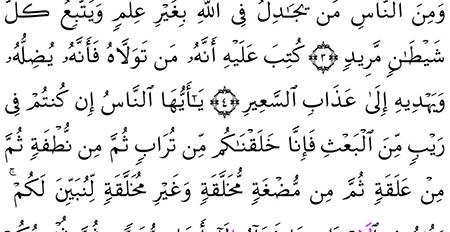 وَمِنَ النَّاسِ مَن يُجَٰدِلُ فِى اللَّهِ بِغَيْرِ عِلْمٍ وَيَتَّبِعُ كُلَّ
شَيْطَٰنٍ مَّرِيدٍ ﴿٣﴾ كُتِبَ عَلَيْهِ أَنَّهُۥ مَن تَوَلَّاهُ فَأَنَّهُۥ يُضِلُّهُۥ
وَيَهْدِيهِ إِلَىٰ عَذَابِ السَّعِيرِ ﴿٤﴾ يَٰٓأَيُّهَا النَّاسُ إِن كُنتُمْ فِى
رَيْبٍ مِّنَ الْبَعْثِ فَإِنَّا خَلَقْنَٰكُم مِّن تُرَابٍ ثُمَّ مِن نُّطْفَةٍ ثُمَّ
مِنْ عَلَقَةٍ ثُمَّ مِن مُّضْغَةٍ مُّخَلَّقَةٍ وَغَيْرِ مُخَلَّقَةٍ لِّنُبَيِّنَ لَكُمْ ۚ